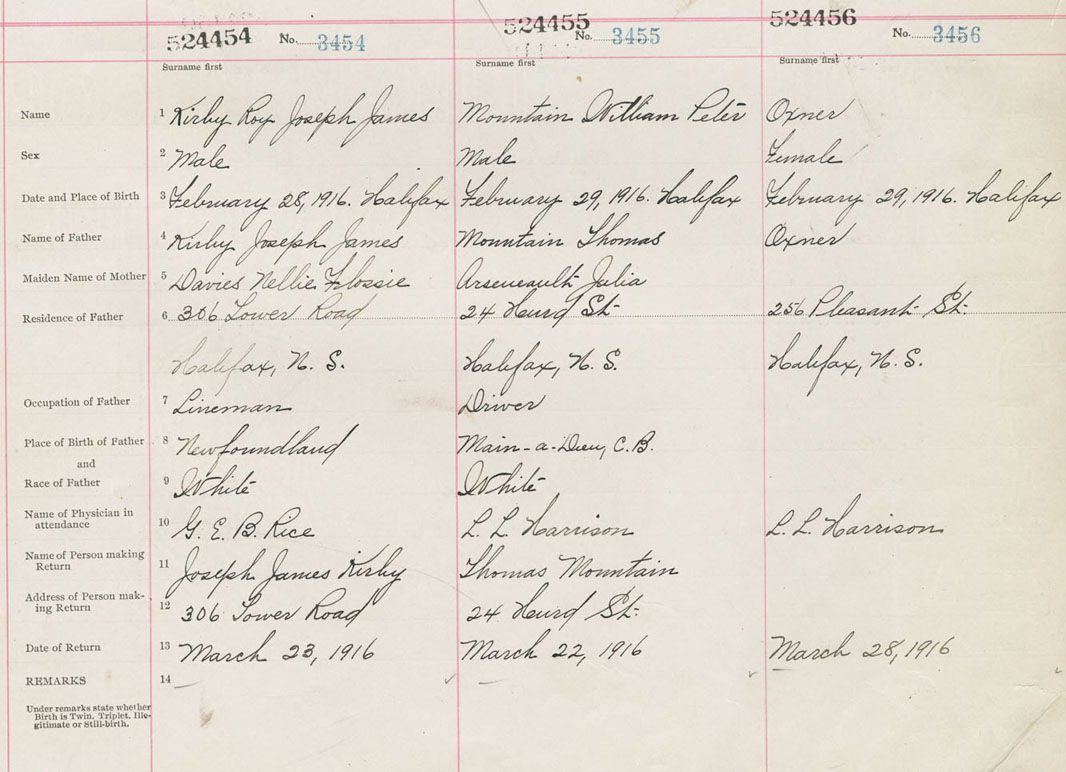 524454 No. 3454 524455 No. 3455 524456 No. 3456
Surname first Surname first Surname first
Name 1 Kirby Roy Joseph James Mountain William Peter Oxner
Sex 2 Male Male Female
Date and Place of Birth 3 February 28, 1916. Halifax February 29, 1916. Halifax February 29, 1916. Halifax
Name of Father 4 Kirby Joseph James Mountain Thomas Oxner
Maiden Name of Mother 5 Davies Nellie Flossie Arseneault Julia
Residence of Father 6 306 Lower Road 24 Hurd St. 256 Pleasant St.
Halifax, N. S. Halifax, N. S. Halifax, N. S.
Occupation of Father 7 Lineman Driver
Place of Birth of Father 8 Newfoundland Main-a-Dieu, C. B.
and
Race of Father 9 White White
Name of Physician in
attendance 10 G. E. B. Rice L. L. Harrison L. L. Harrison
Name of Person making
Return 11 Joseph James Kirby Thomas Mountain
Address of Person mak-
ing Return 12 306 Tower Road 24 Hurd St.
Date of Return 13 March 23, 1916 March 22, 1916 March 28, 1916
REMARKS 14
Under remarks state whether
Birth is Twin, Triplet, Ille-
gitimate or Still-birth.